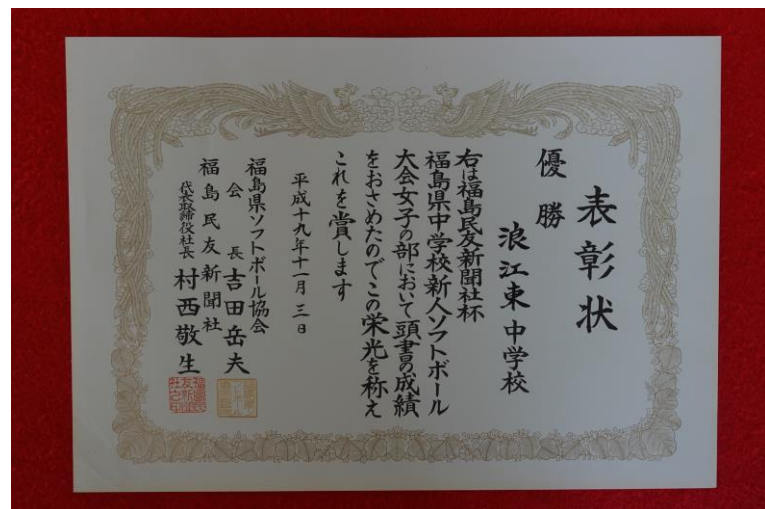 表彰状
優勝
浪江東中学校
右は福島民友新聞社杯
福島県中学校新人ソフトボール
大会女子の部において頭書の成績
をおさめたのでこの栄光を称え
これを賞します
平成十九年十一月三日
福島県ソフトボール協会
会長 吉田岳夫
福島民友新聞社
代表取締役社長 村西敬生